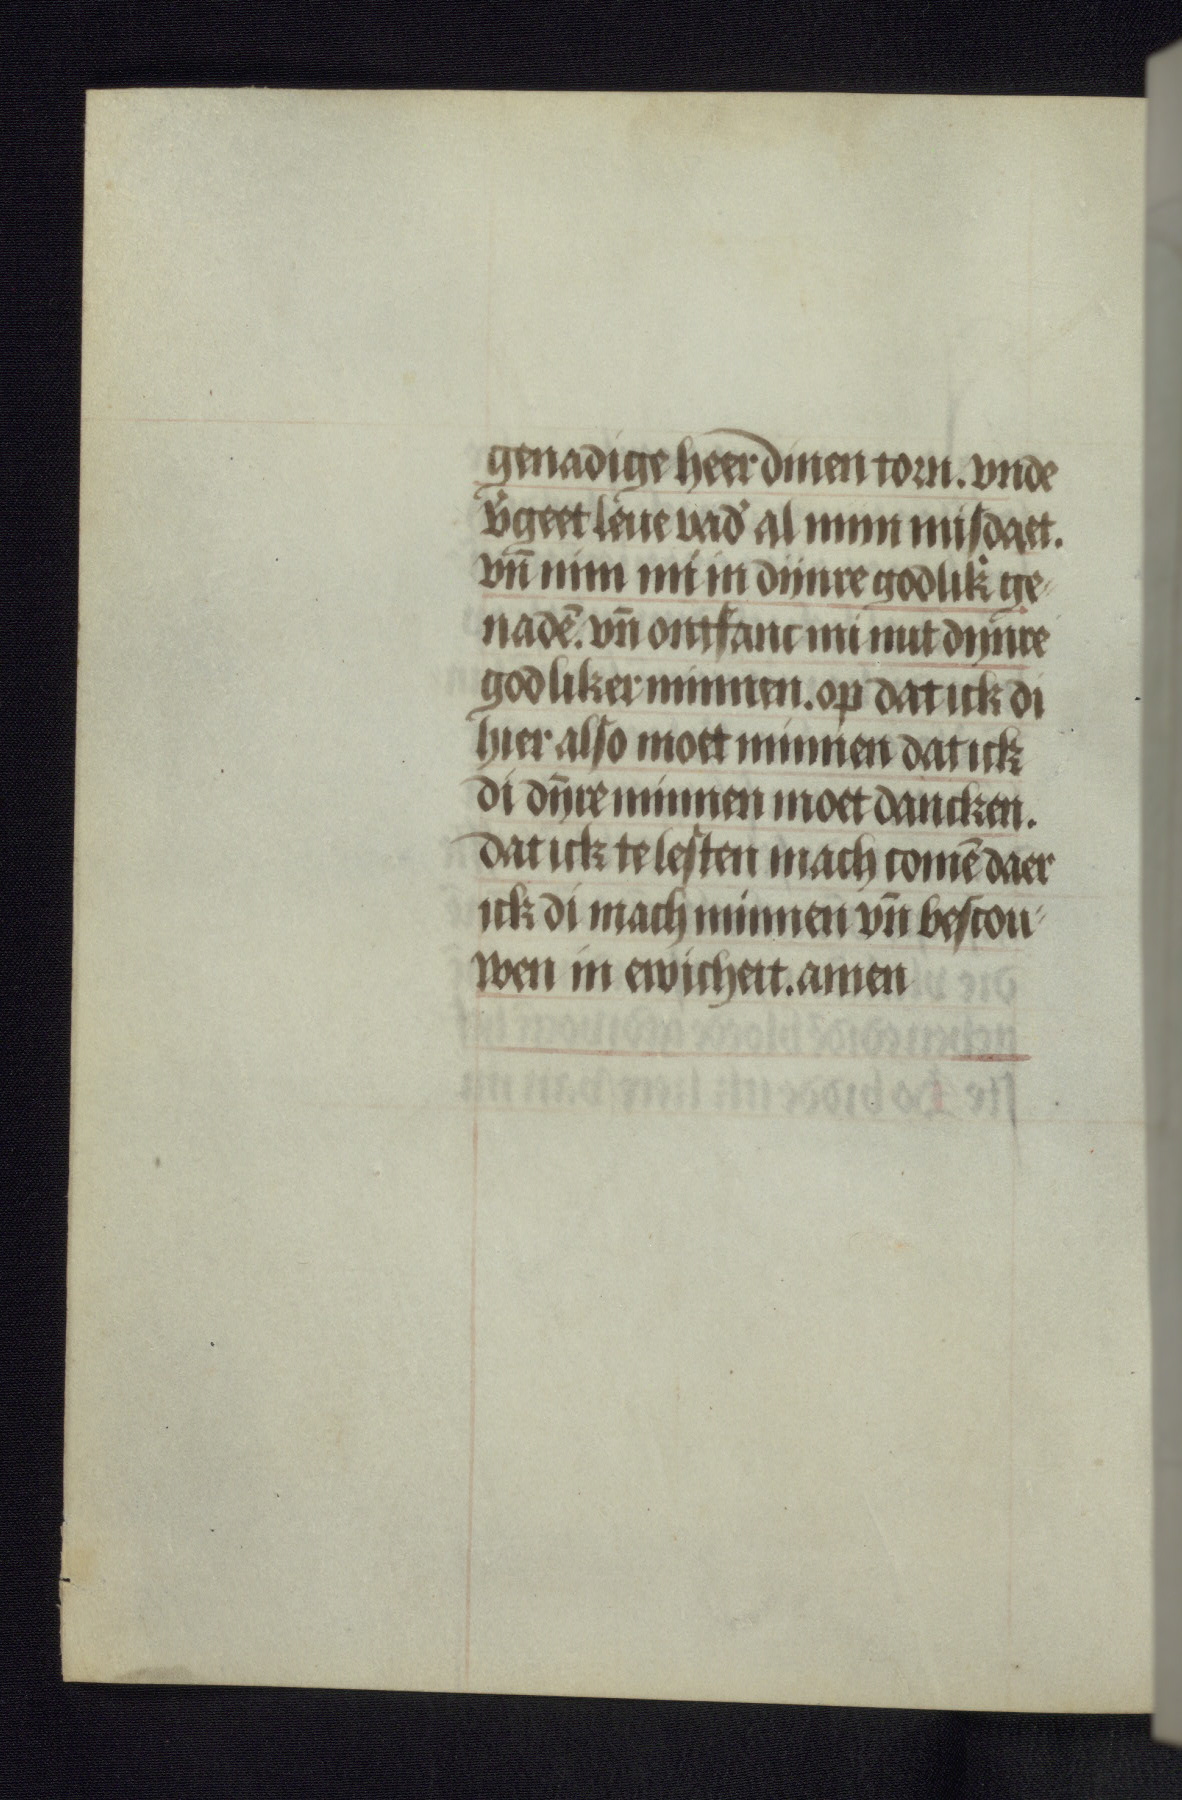 genadige heer dinen torn. vnde
v̉geet leue vad̉ al mijn misdaet.
vn̄ nim mi in dijnre godlik̉ ge-
nadē. vn̄ ontfanc mi mit dijnre
godliker minnen. op dat ick di
hier also moet minnen dat ick
di dijnre minnen moet dancken.
dat ick te lesten mach comē daer
ick di mach minnen vn̄ bescou-
wen in ewicheit. amen